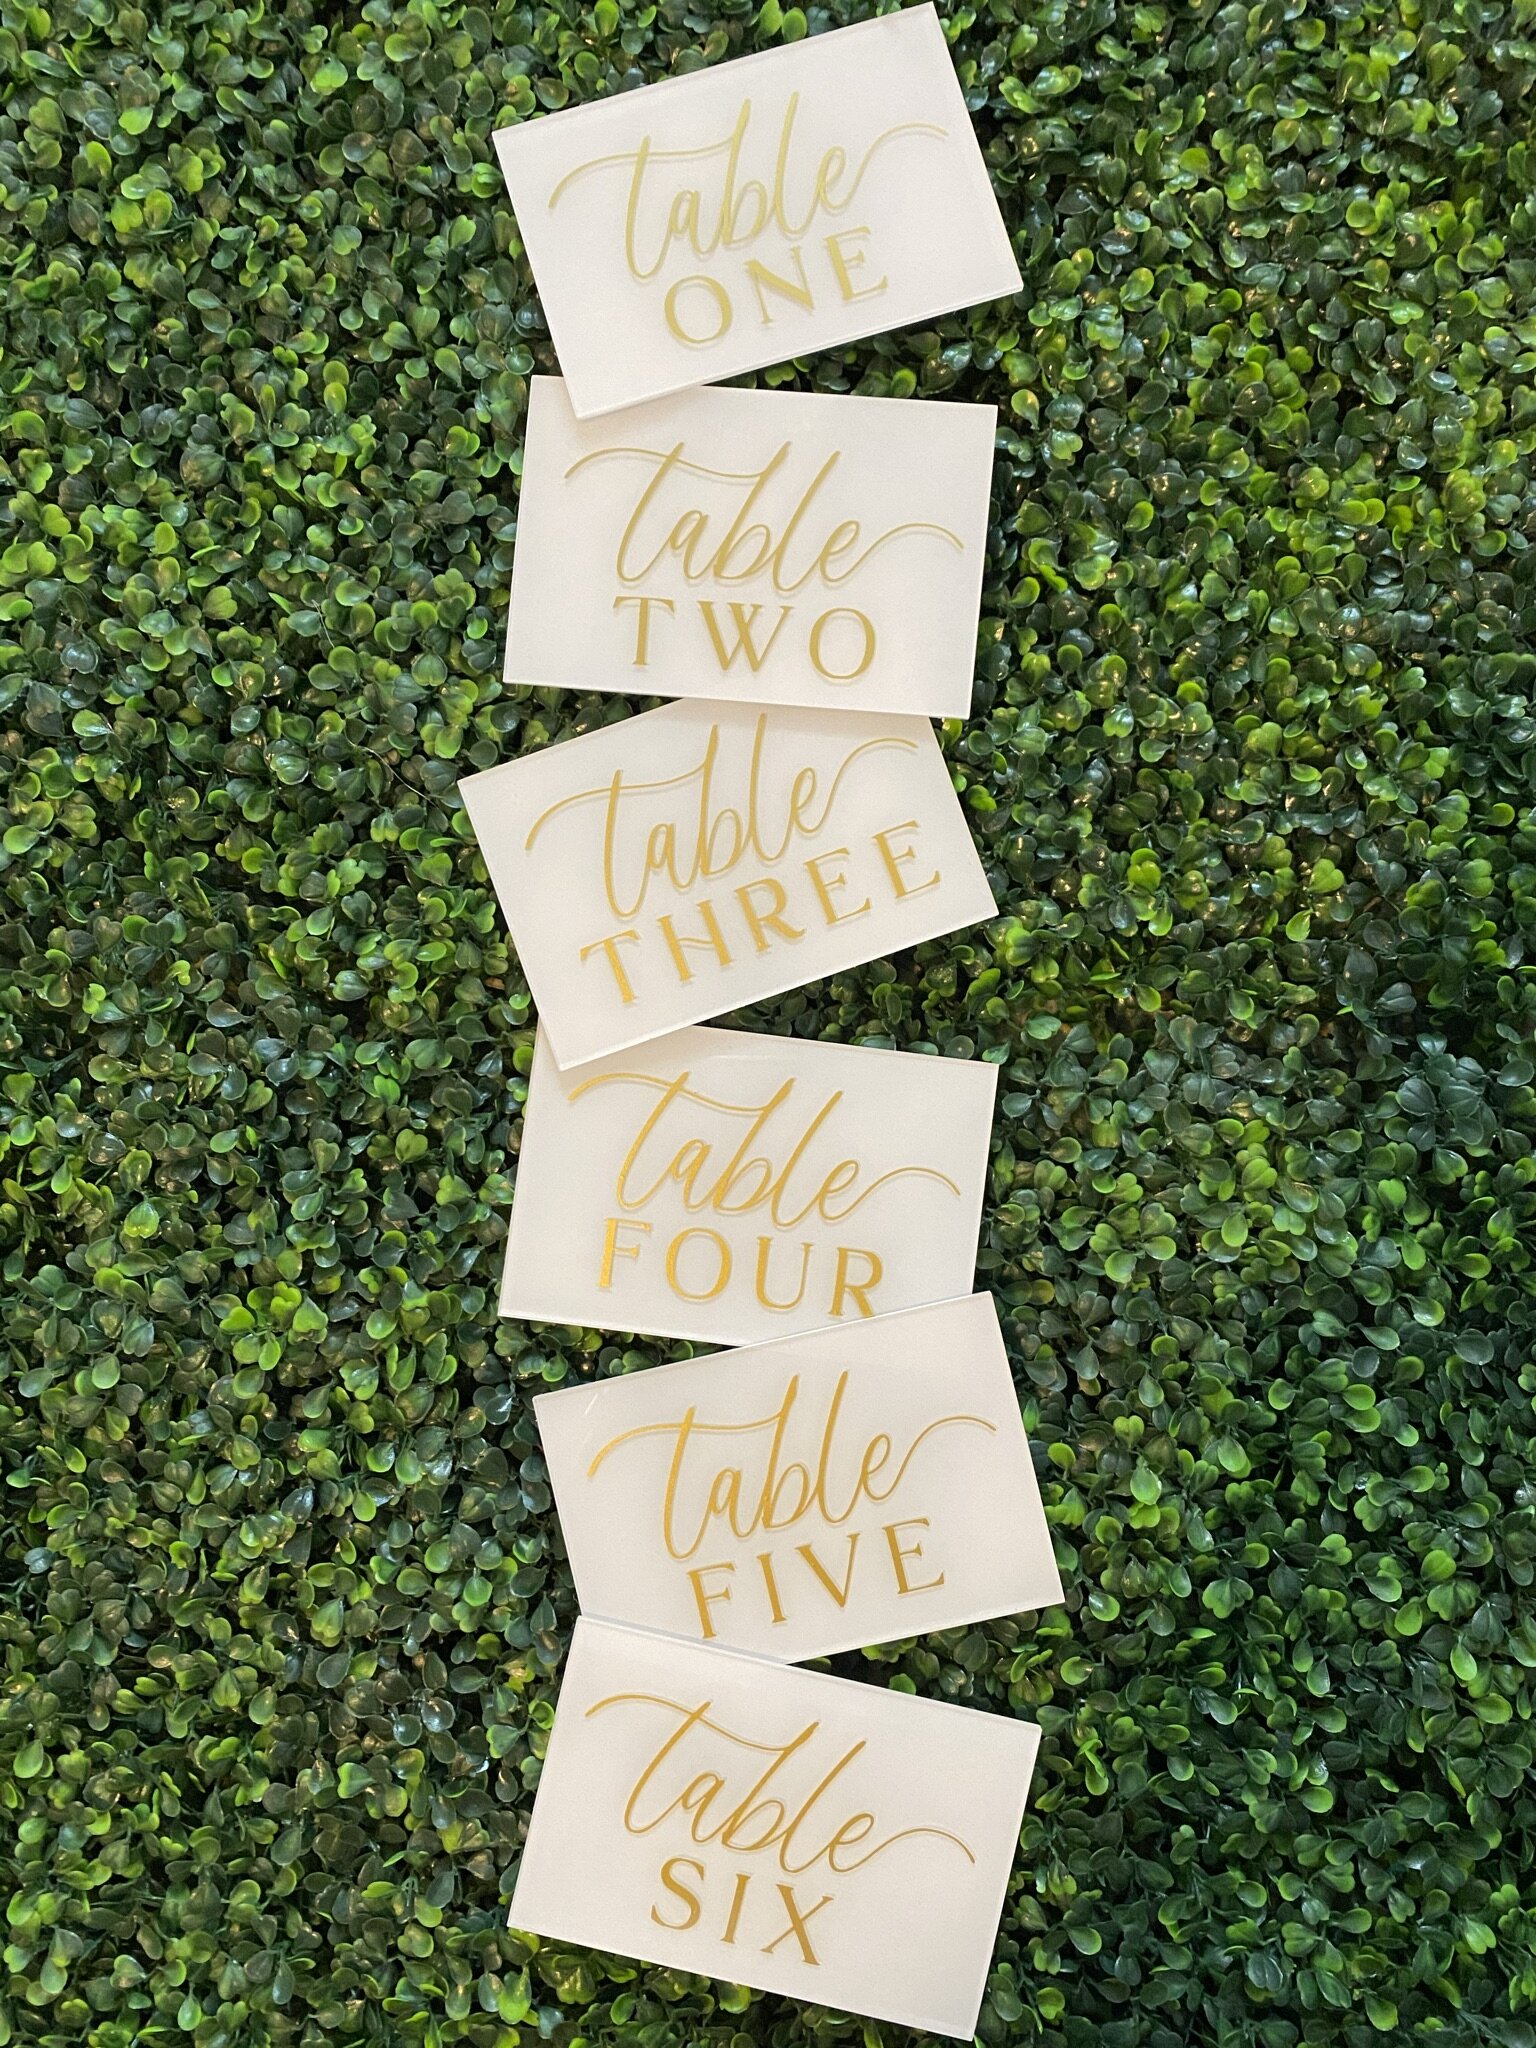 table
ONE
table
TWO
table
THREE
table
FOUR
table
FIVE
table
SIX